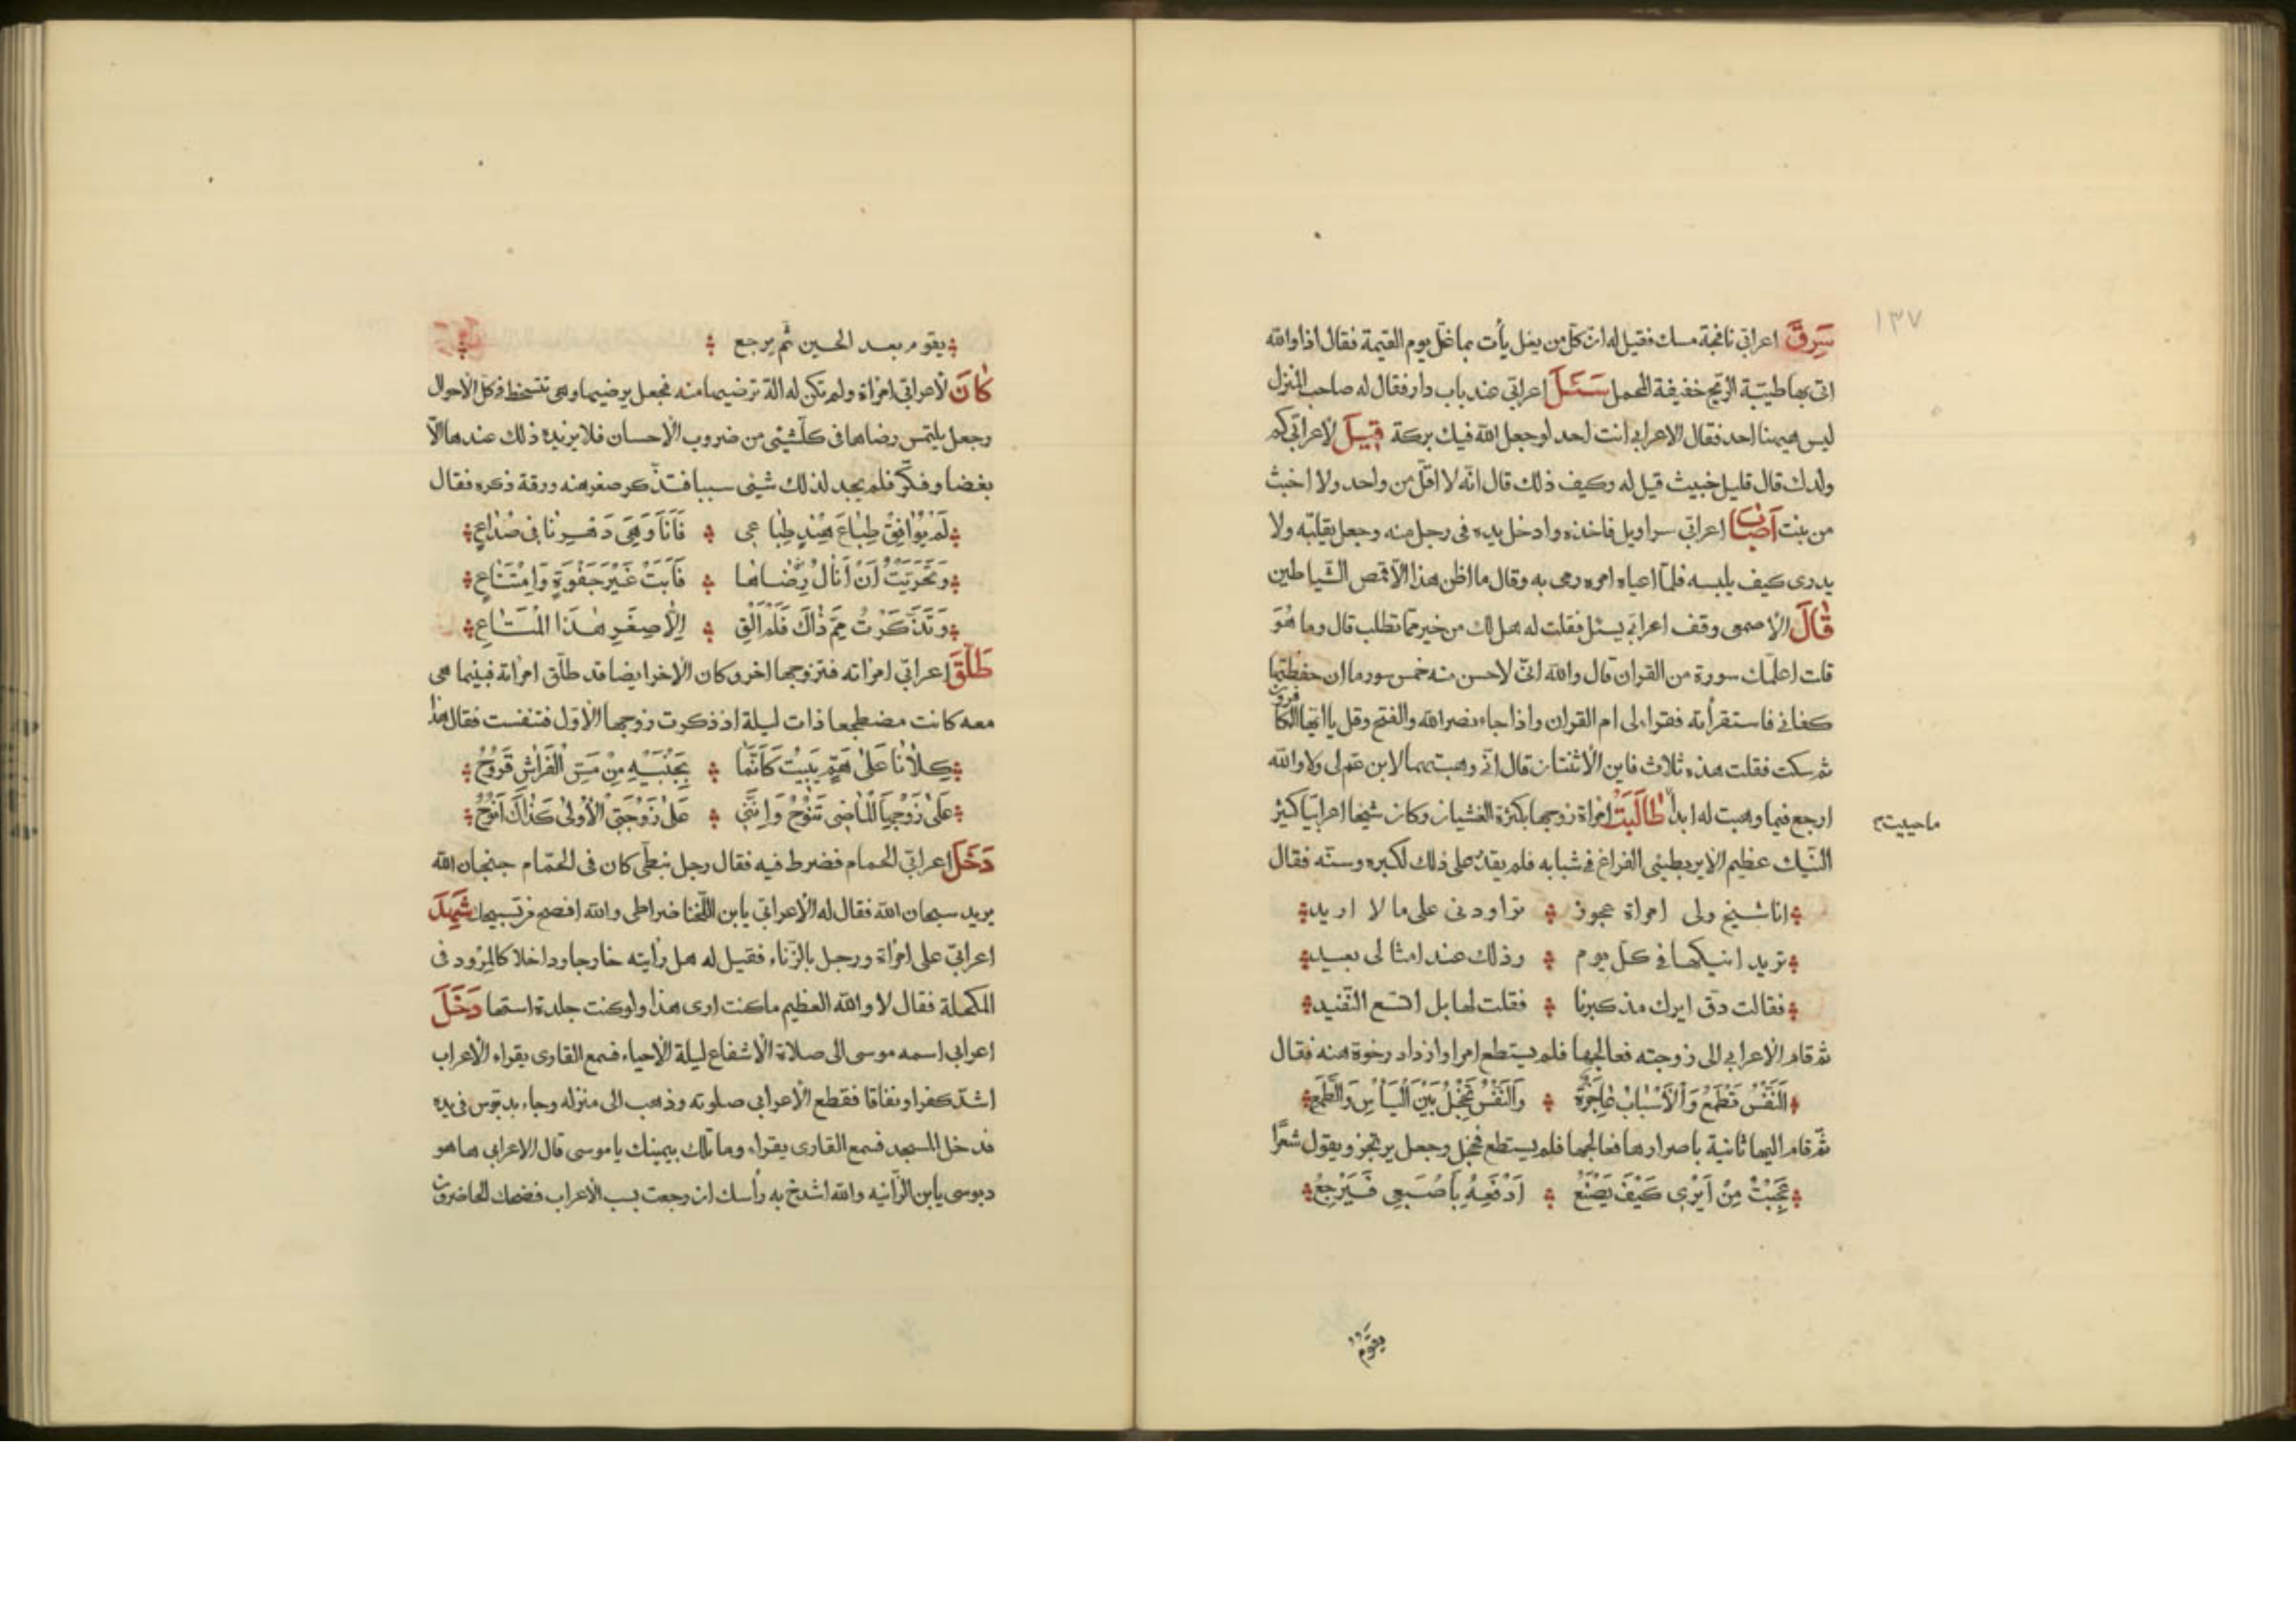 ١٣٧
سَرِقَ اعرابي نافجة مسك فقيل له ان كل من يغل يأت بما غل يوم القيمة فقال اذا والله
اتى بها طيبة الريح خفيفة المحمل سَئَلَ اعرابي عند باب دار فقال له صاحب المنزل
ليس هيهنا احد فقال الاعرابي انت احد لو جعل الله فيك بركة قِيلَ لاعرابي كم
ولدك قال قليل خبيث قيل له وكيف ذلك قال انه لا اقل من واحد ولا اخبث
من بنت اَصَابَ اعرابي سراويل فاخذه وادخل يده فى رجل منه وجعل يقلبه ولا
يدرى كيف يلبسه فلما اعياه امره رمى به وقال ما اظن هذا الا قمص الشياطين
قَالَ الاصمعى وقف اعرابي يسئل فقلت له هل لك من خير مما تطلب قال وما هُوَ
قلت اعلمك سورة من القران قال والله انى لاحسن منه خمس سور ما ان حفظتها
كفانى فاستقرأته فقراء لى ام القران واذا جاء نصر الله والفتح وقل يا ايها الكافرون
ثم سكت فقلت هذه ثلاث فاين الاثنتان قال انى وهبتهما لابن عم لى ولا والله
ارجع فيما وهبت له ابداً طَالَبَتْ امراة زوجها بكثرة الغشيان وكان شيخا اعرابيا كثير
ما حييت
النيك عظيم الاير بطيئى الفراغ فى شبابه فلم يقدر على ذلك لكبره وسنه فقال
انا شيخ ولى امراة عجوز تراودنى على ما لا اريد
تريد انيكها فى كل يوم وذلك عند امثالى بعيد
فقالت دق ايرك مذ كبرنا فقلت لها بل اتسع القفيد
ثم قام الاعرابي الى زوجته فعالجها فلم يستطع امرا وازداد رخوة منه فقال
اَلنَّفْسُ تَطْمَعُ وَالْاَسْبَابُ عَاجِزَةٌ وَالنَّفْسُ تَخْجَلُ بَيْنَ الْيَاْسِ وَالطَّمَعِ
ثم قام اليها ثانية باصرارها فعالجها فلم يستطع فخجل وجعل يرتجز ويقول شعرًا
عَجِبْتُ مِنْ اَيْرِى كَيْفَ يَصْنَعُ اَدْفَعُهُ بِاَصْبَعِى فَيَرْجِعُ
يقوم
يقوم بعد الحين ثم يرجع
كَانَ لاعرابي امراة ولم تكن له الة ترضيها منه فجعل يرضيها وهى تتسخط فى كل الاحوال
وجعل يلتمس رضاها فى كل شيئى من ضروب الاحسان فلا يزيده ذلك عندها الا
بغضا وفكر فلم يجد لذلك شيئى سببا فتذكر صغر هنه ورقة ذكره فقال
لَمْ يُوَافِقْ طِبَاعَ هِنْدٍ طِبَاعِى فَاَنَا وَهِىَ دَهْرِنَا فِى صُدَاعٍ
وَتَحَرَّيْتُ اَنْ اَنَالَ رِضَاهَا فَاَبَتْ غَيْرَ جَفْوَةٍ وَامْتِنَاعِ
وَتَذَكَّرْتُ مِمَّ ذَاكَ فَلَمْ اَلْقَ اِلَّا صِغَرِ هَذَا الْمَتَاعِ
طَلَّقَ اعرابي امراته فتزوجها اخر وكان الاخر ايضا قد طلق امراته فبينما هى
معه كانت مضطجعا ذات ليلة اذ ذكرت زوجها الاول فتنفست فقال هذا
كِلَانَا عَلَى هَمٍّ يَبِيتُ كَاَنَّمَا بِجَنْبَيْهِ مِنْ مَسِّ الْفَرَاشِ قُرُوحُ
عَلَى زَوْجِهَا الْمَاضِى تَنُوحُ وَاِنَّنِى عَلَى زَوْجَتِى الْاُولَى كَذَاكَ اَنُوحُ
دَخَلَ اعرابي الحمام فضرط فيه فقال رجل نبطى كان فى الحمام جنجان الله
يريد سبحان الله فقال له الاعرابي يابن اللخنا ضراطى والله افصح من تسبيحك شَهِدَ
اعرابي على امراة ورجل بالزناء فقيل له هل رايته خارجا وداخلا كالمرود فى
المكحلة فقال لا والله العظيم ما كنت ارى هذا ولو كنت جلدة استها دَخَلَ
اعرابي اسمه موسى الى صلاة الاشفاع ليلة الاحياء فسمع القارى يقراء الاعراب
اشد كفرا ونفاقا فقطع الاعرابي صلوته وذهب الى منزله وجاء بدبوس فى يده
فدخل المسجد فسمع القارى يقراء وما تلك بيمينك ياموسى قال الاعرابي ها هو
دبوسى يابن الزانيه والله اشدخ به رأسك ان رجعت بسب الاعراب فضحك الحاضرون